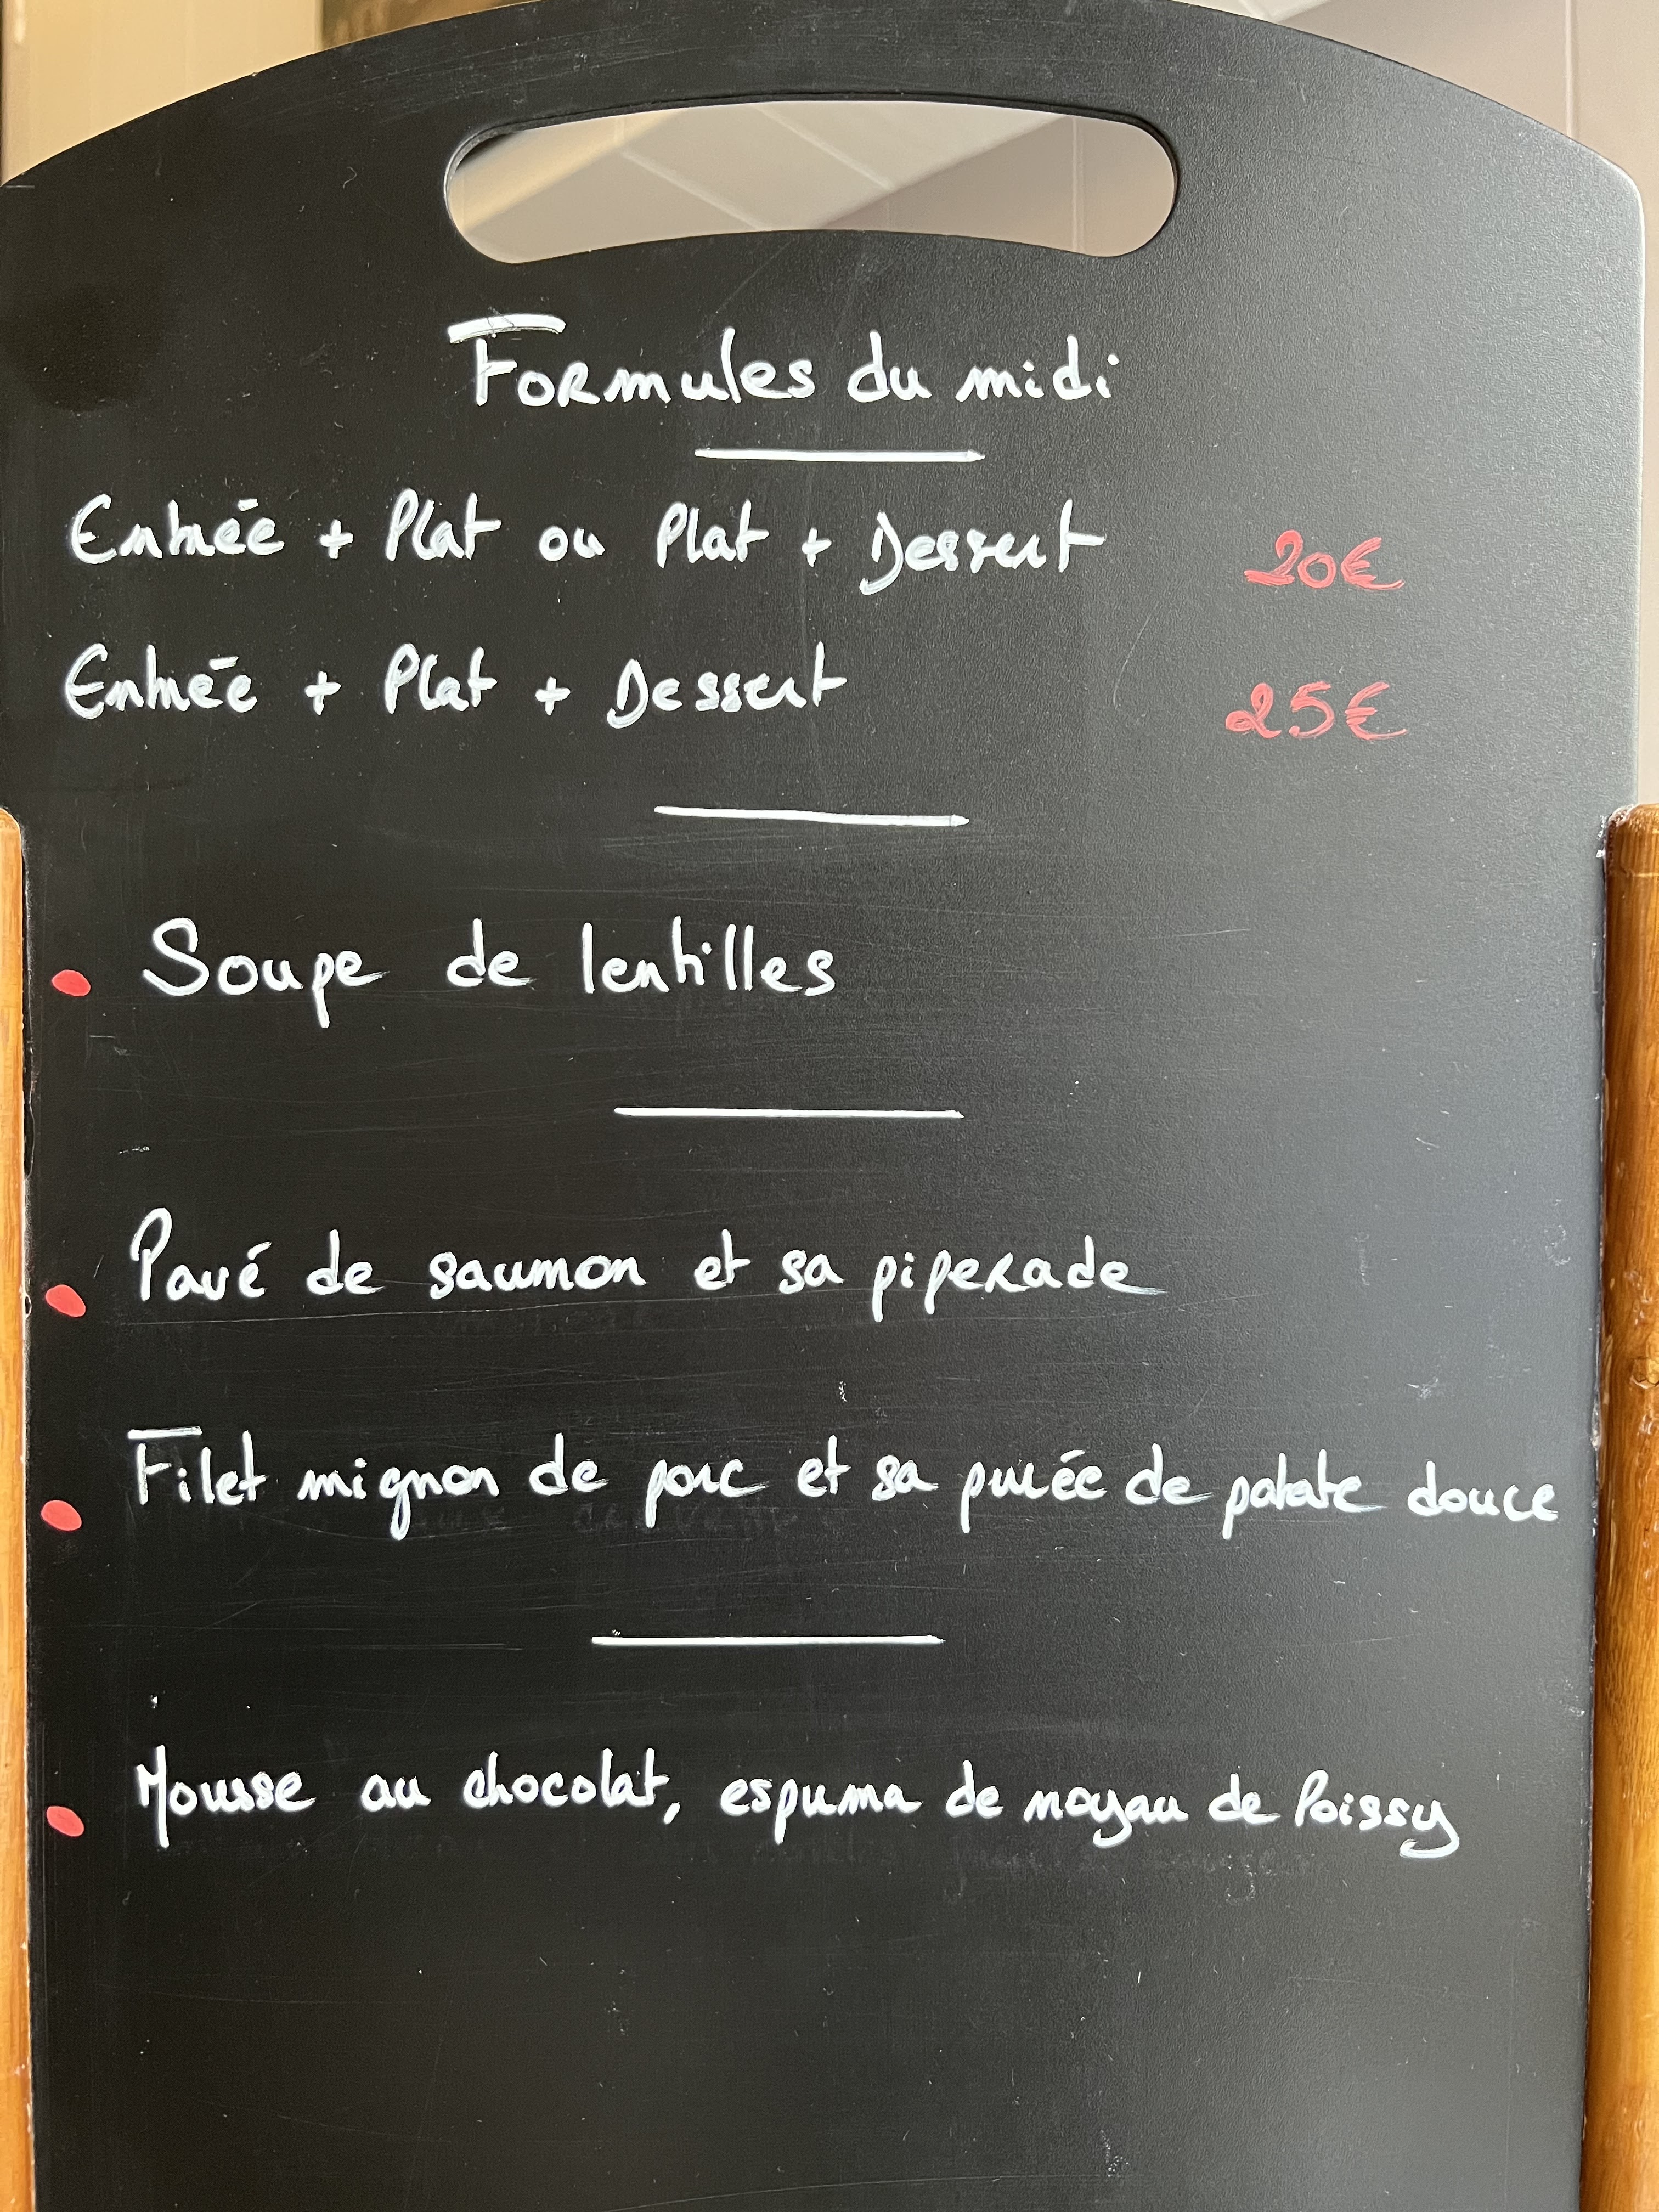 Formules du midi
Entrée + Plat ou Plat + Dessert 20€
Entrée + Plat + Dessert 25€
Soupe de lentilles
Pavé de saumon et sa piperade
Filet mignon de porc et sa purée de patate douce
Mousse au chocolat, espuma de noyau de Poissy